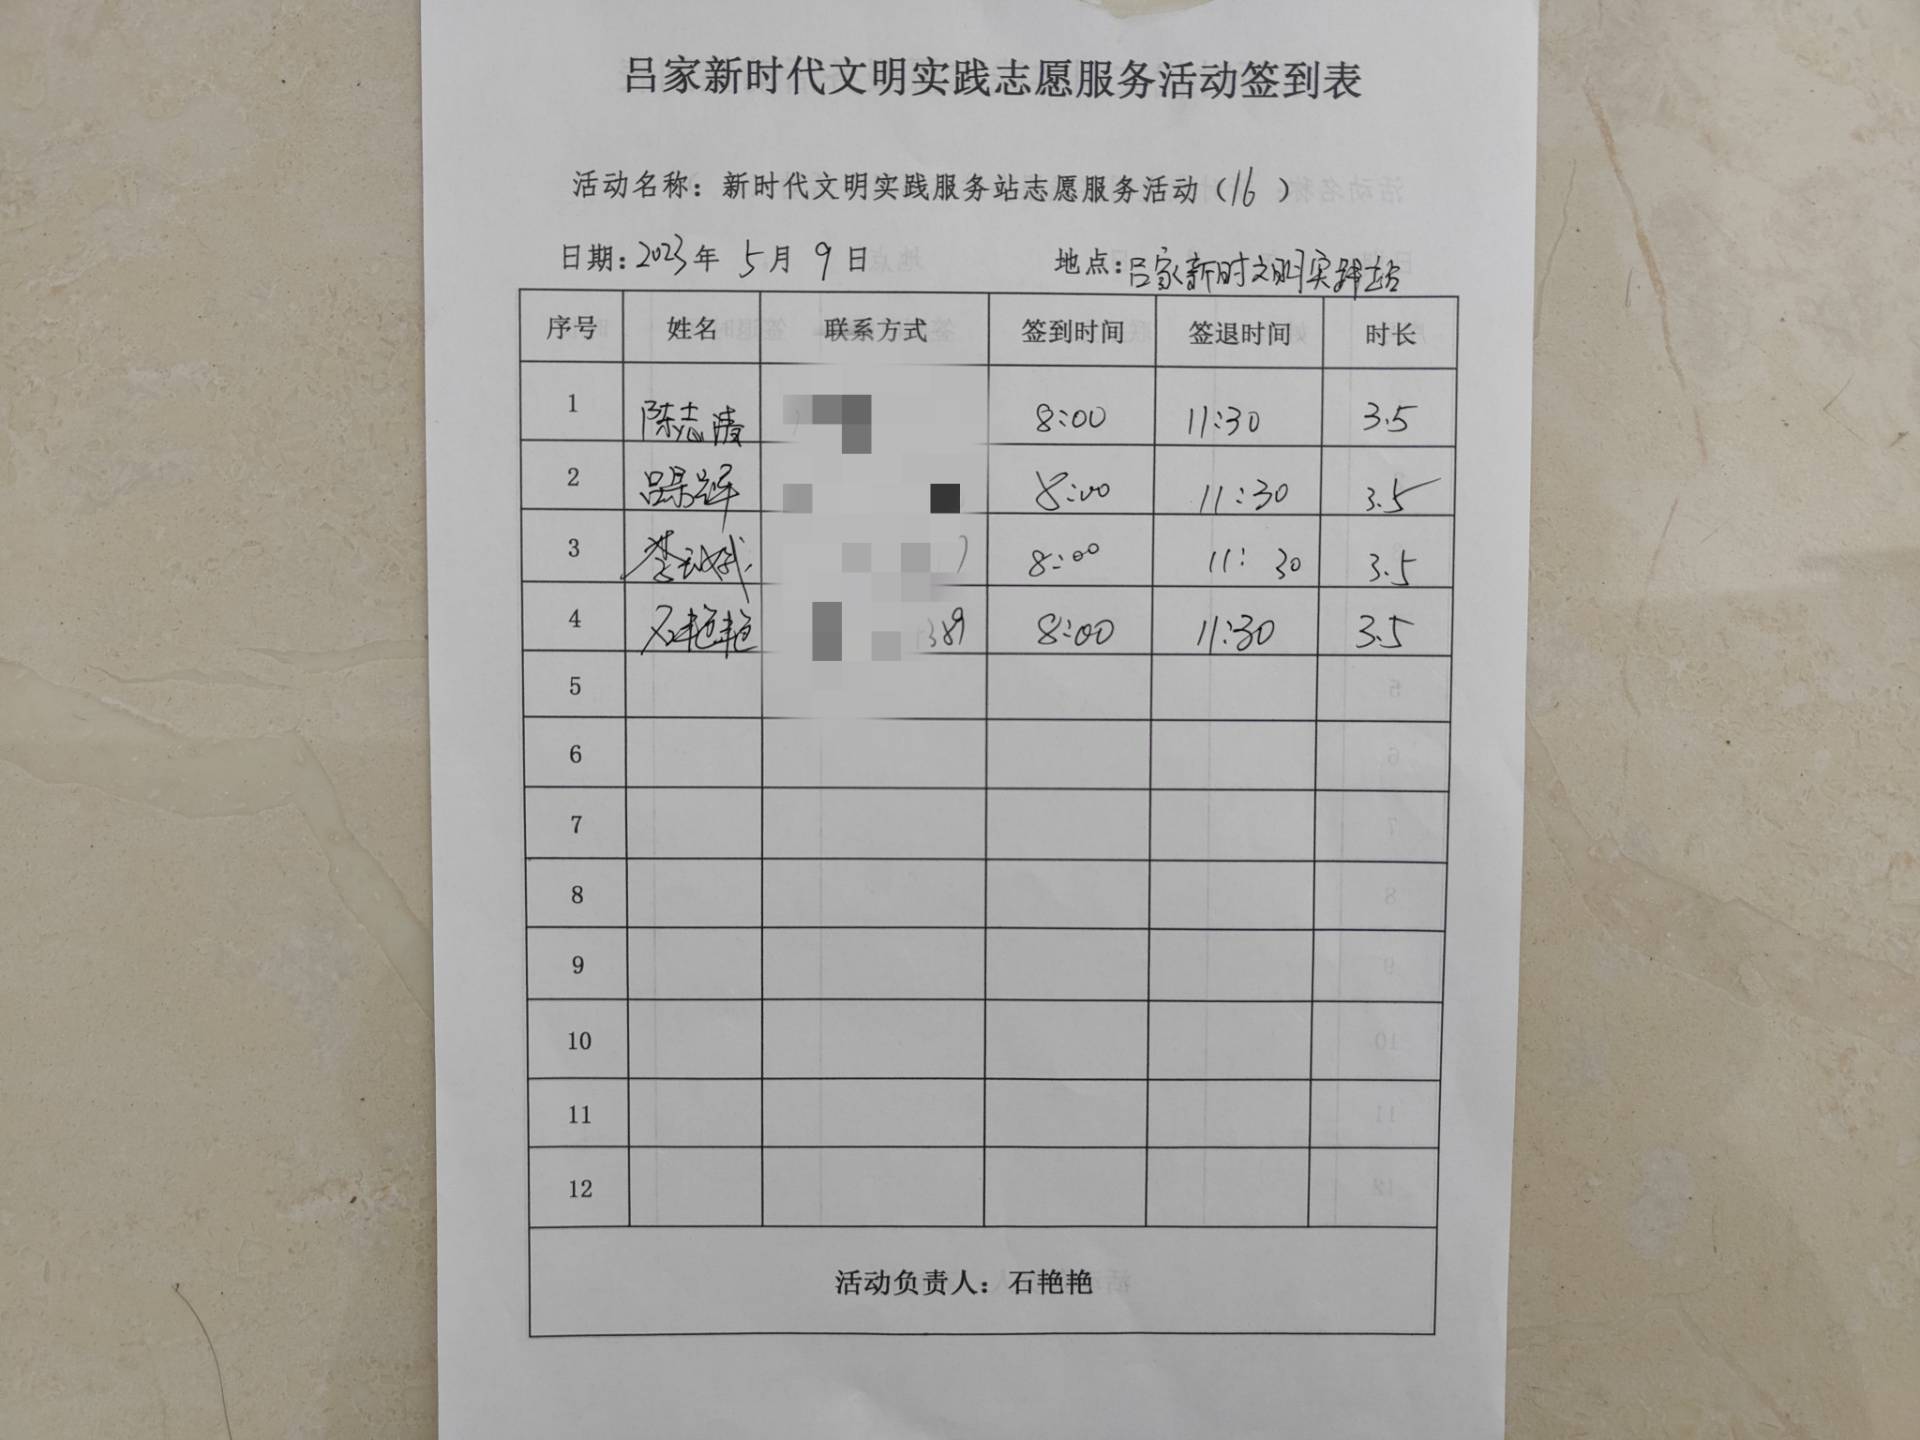 吕家新时代文明实践志愿服务活动签到表
活动名称：新时代文明实践服务站志愿服务活动（16）
日期：2023年 5月 9日 地点：吕家新时文明实践站
序号 姓名 联系方式 签到时间 签退时间 时长
1 陈志清 8:00 11:30 3.5
2 8:00 11:30 3.5
3 8:00 11:30 3.5
4 石艳艳 389 8:00 11:30 3.5
5
6
7
8
9
10
11
12
活动负责人：石艳艳